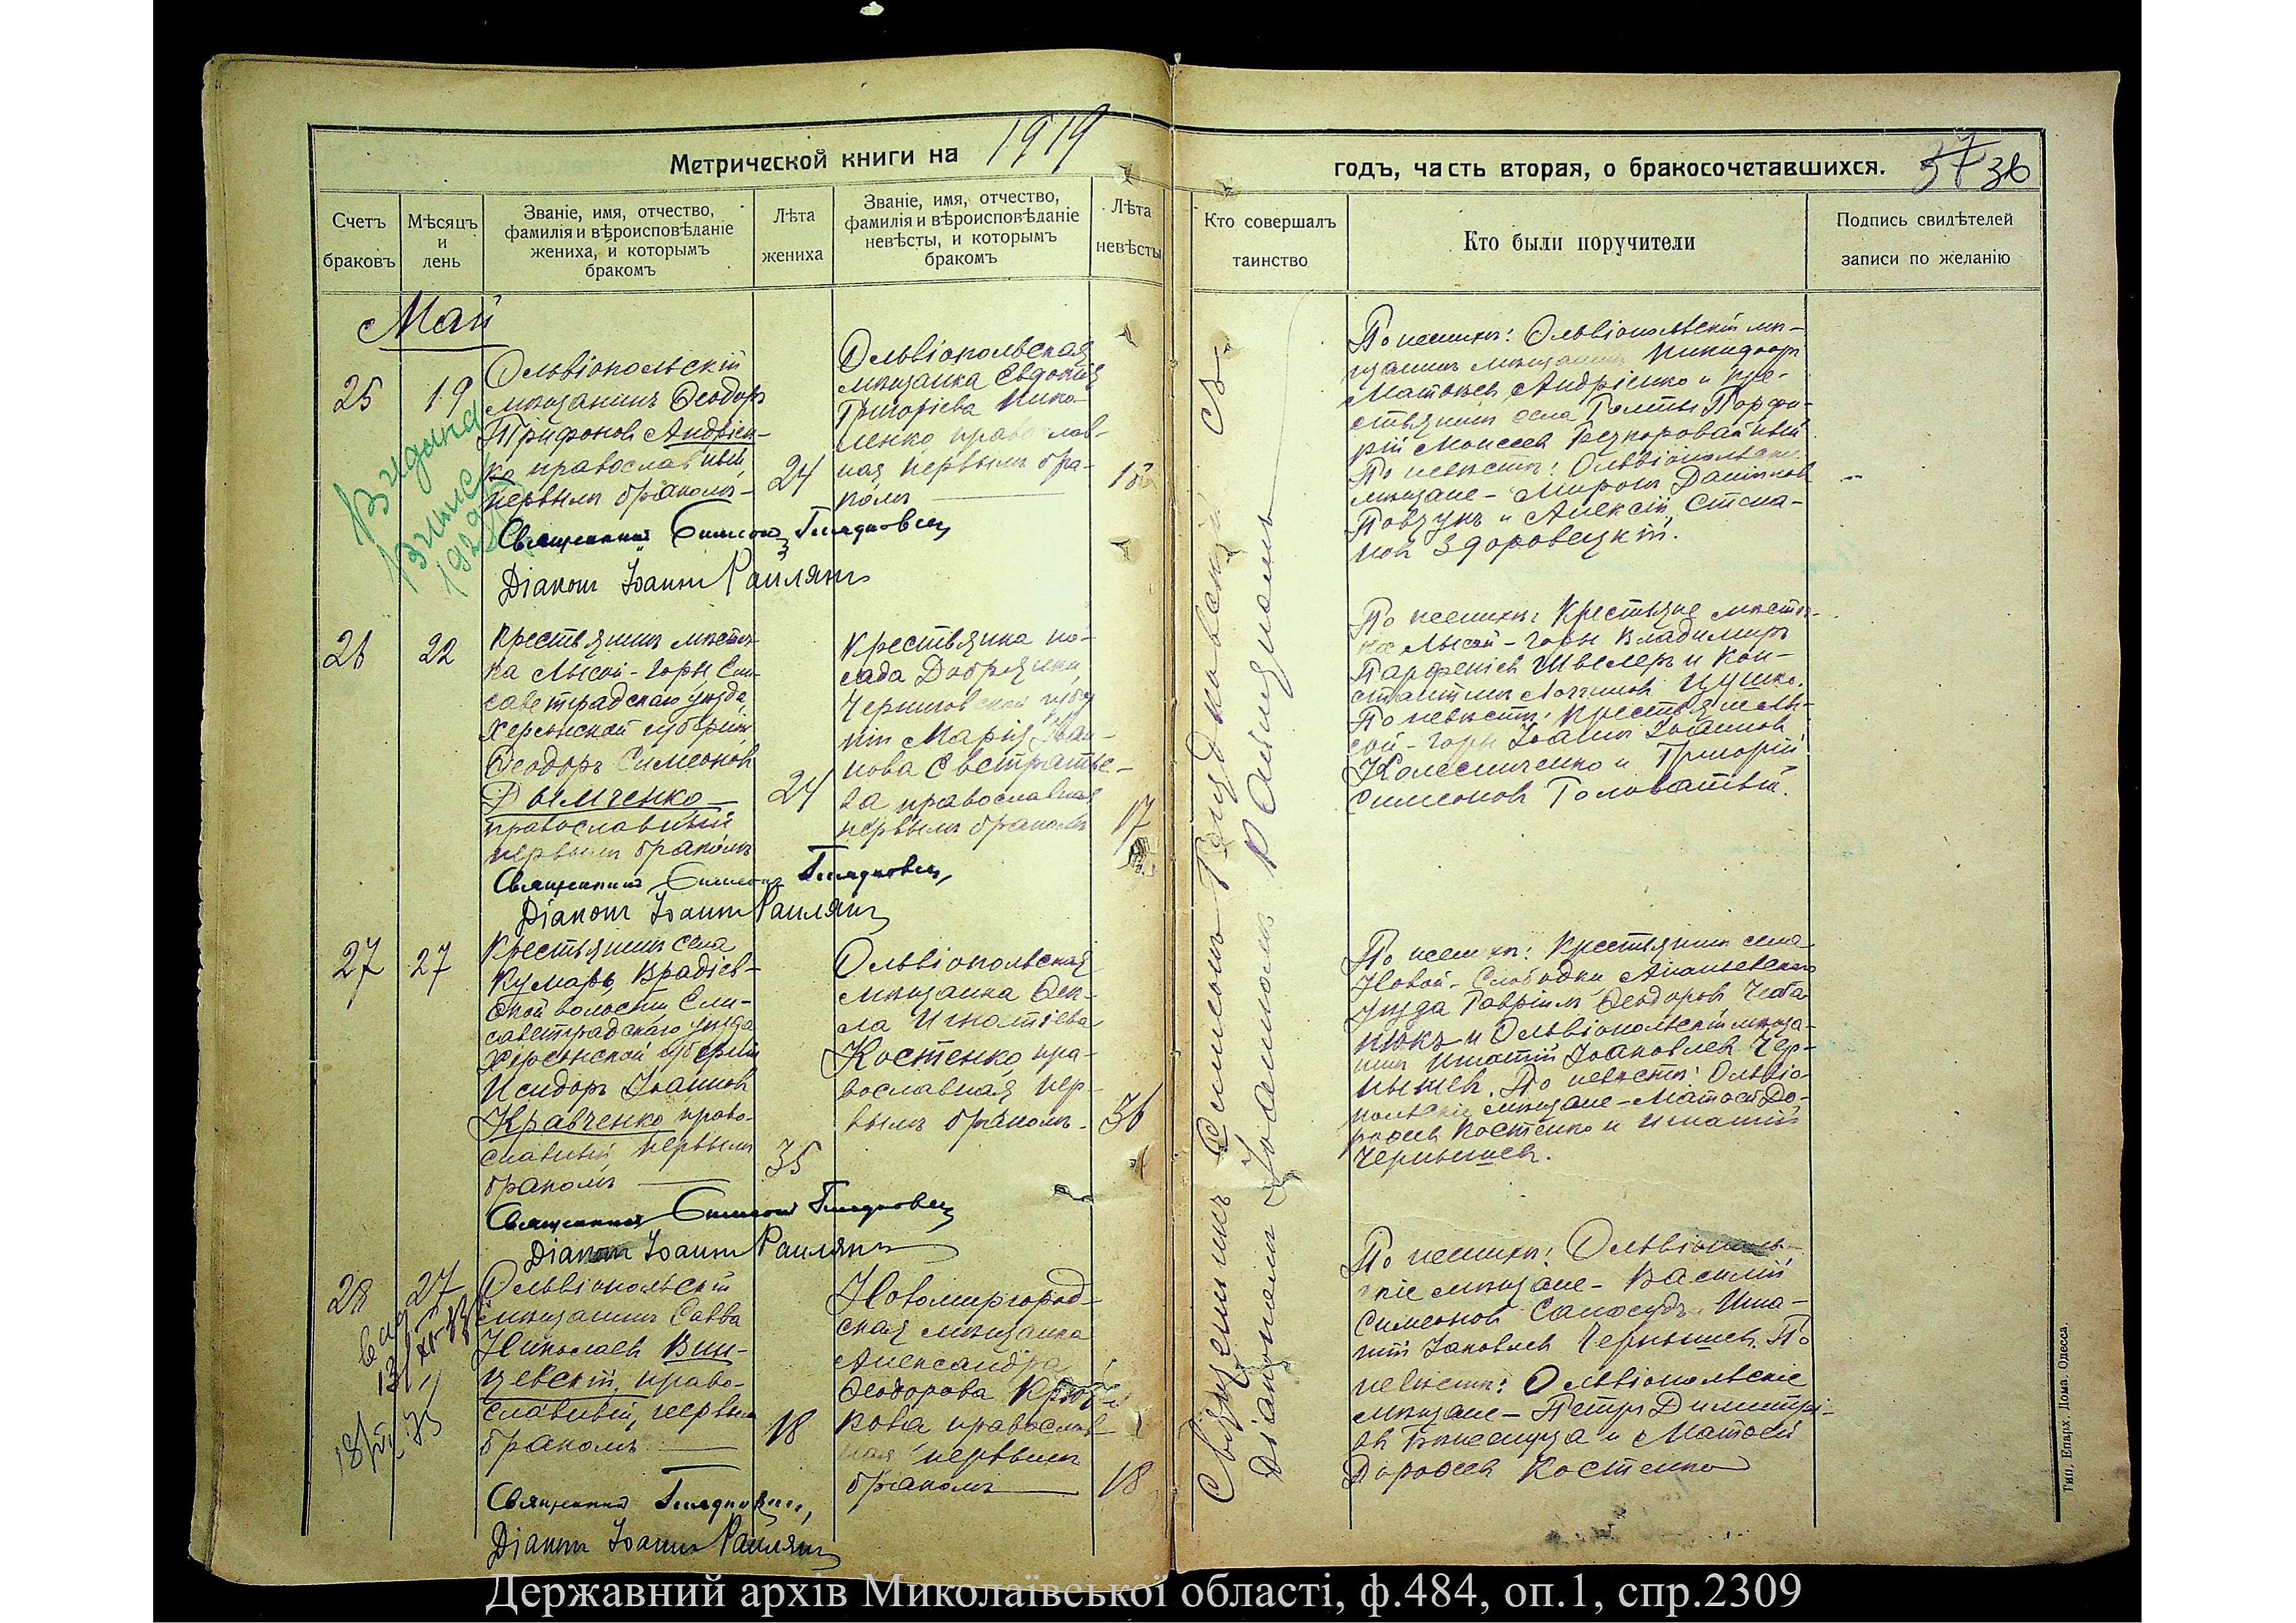 Метрической книги на 1919
годъ, часть вторая, о бракосочетавшихся.
37 36
Счетъ браковъ
Мѣсяцъ и день
Званіе, имя, отчество, фамилія и вѣроисповѣданіе жениха, и которымъ бракомъ
Лѣта жениха
Званіе, имя, отчество, фамилія и вѣроисповѣданіе невѣсты, и которымъ бракомъ
Лѣта невѣсты
Кто совершалъ таинство
Кто были поручители
Подпись свидѣтелей записи по желанію
Май
25
19
Ольвіопольскій
мѣщанинъ Ѳеодоръ
Трифоновъ Андріен-
ко православный,
первымъ бракомъ
24
Ольвіопольская
мѣщанка Евдокія
Григоріева Нико-
ленко православ-
ная первымъ бра-
комъ
18
Священникъ Симеонъ
Діаконъ Іоаннъ Раилянъ
Видана
1929
По женихѣ: Ольвіопольскій мѣ-
щанинъ Никифоръ
Матѳіевъ Андріенко и кре-
стьянинъ села Голты Порфи-
рій Моисеевъ
По невѣстѣ: Ольвіопольскіе
мѣщане - Миронъ Даніиловъ
Повзунъ и Алексій Стефа-
новъ Здоровецкій.
26
22
Крестьянинъ мѣстеч-
ка Лысой-Горы, Ели-
саветградскаго уѣзда,
Херсонской губерніи
Ѳеодоръ Симеоновъ
Дымченко
православный
первымъ бракомъ
24
Крестьянка по-
сада Добрянки,
Черниговской губер
ніи Марія Іоан-
нова Евстратье-
ва православная
первымъ бракомъ
17
Священникъ Симеонъ
Діаконъ Іоаннъ Раилянъ
По женихѣ: Крестьяне мѣстеч-
ка Лысой-Горы Владимиръ
Парфеніевъ Швецъ и Кон-
стантинъ Логгиновъ
По невѣстѣ: крестьяне Лы-
сой-Горы Іоаннъ Іоанновъ
Колесниченко и Григорій
Симеоновъ Головатый.
27
27
Крестьянинъ села
Кумаръ, Врадіев-
ской волости Ели-
саветградскаго уѣзда
Херсонской губерніи
Исидоръ Іоанновъ
Кравченко право-
славный первымъ
бракомъ
35
Ольвіопольская
мѣщанка Ѳек-
ла Игнатіева
Костенко, пра-
вославная пер-
вымъ бракомъ.
36
Священникъ Симеонъ
Діаконъ Іоаннъ Раилянъ
По женихѣ: Крестьянинъ села
Новой-Слободки Ананьевскаго
уѣзда Гавріилъ Ѳеодоровъ Чеба-
нюкъ и Ольвіопольскій мѣща-
нинъ Игнатій Іаковлевъ Чер-
нышевъ. По невѣстѣ: Ольвіо-
польскіе мѣщане - Матѳей До-
роѳеевъ Костенко и Игнатій
Чернышевъ.
28
27
Ольвіопольскій
мѣщанинъ Савва
Николаевъ Вин-
цевскій, право-
славный, первымъ
бракомъ
18
Новомиргород-
ская мѣщанка
Александра
Ѳеодорова
православ
ная первымъ
бракомъ
18
Священникъ
Діаконъ Іоаннъ Раилянъ
По женихѣ: Ольвіополь-
скіе мѣщане - Василій
Симеоновъ Игна-
тій Іаковлевъ Чернышевъ. По
невѣстѣ: Ольвіопольскіе
мѣщане - Петръ Димитрі-
евъ и Матѳей
Дороѳеевъ Костенко
Священникъ Симеонъ съ
Діакономъ Іоанномъ Раиляномъ
Тип. Епарх. Дома. Одесса.
Державний архів Миколаївської області, ф.484, оп.1, спр.2309